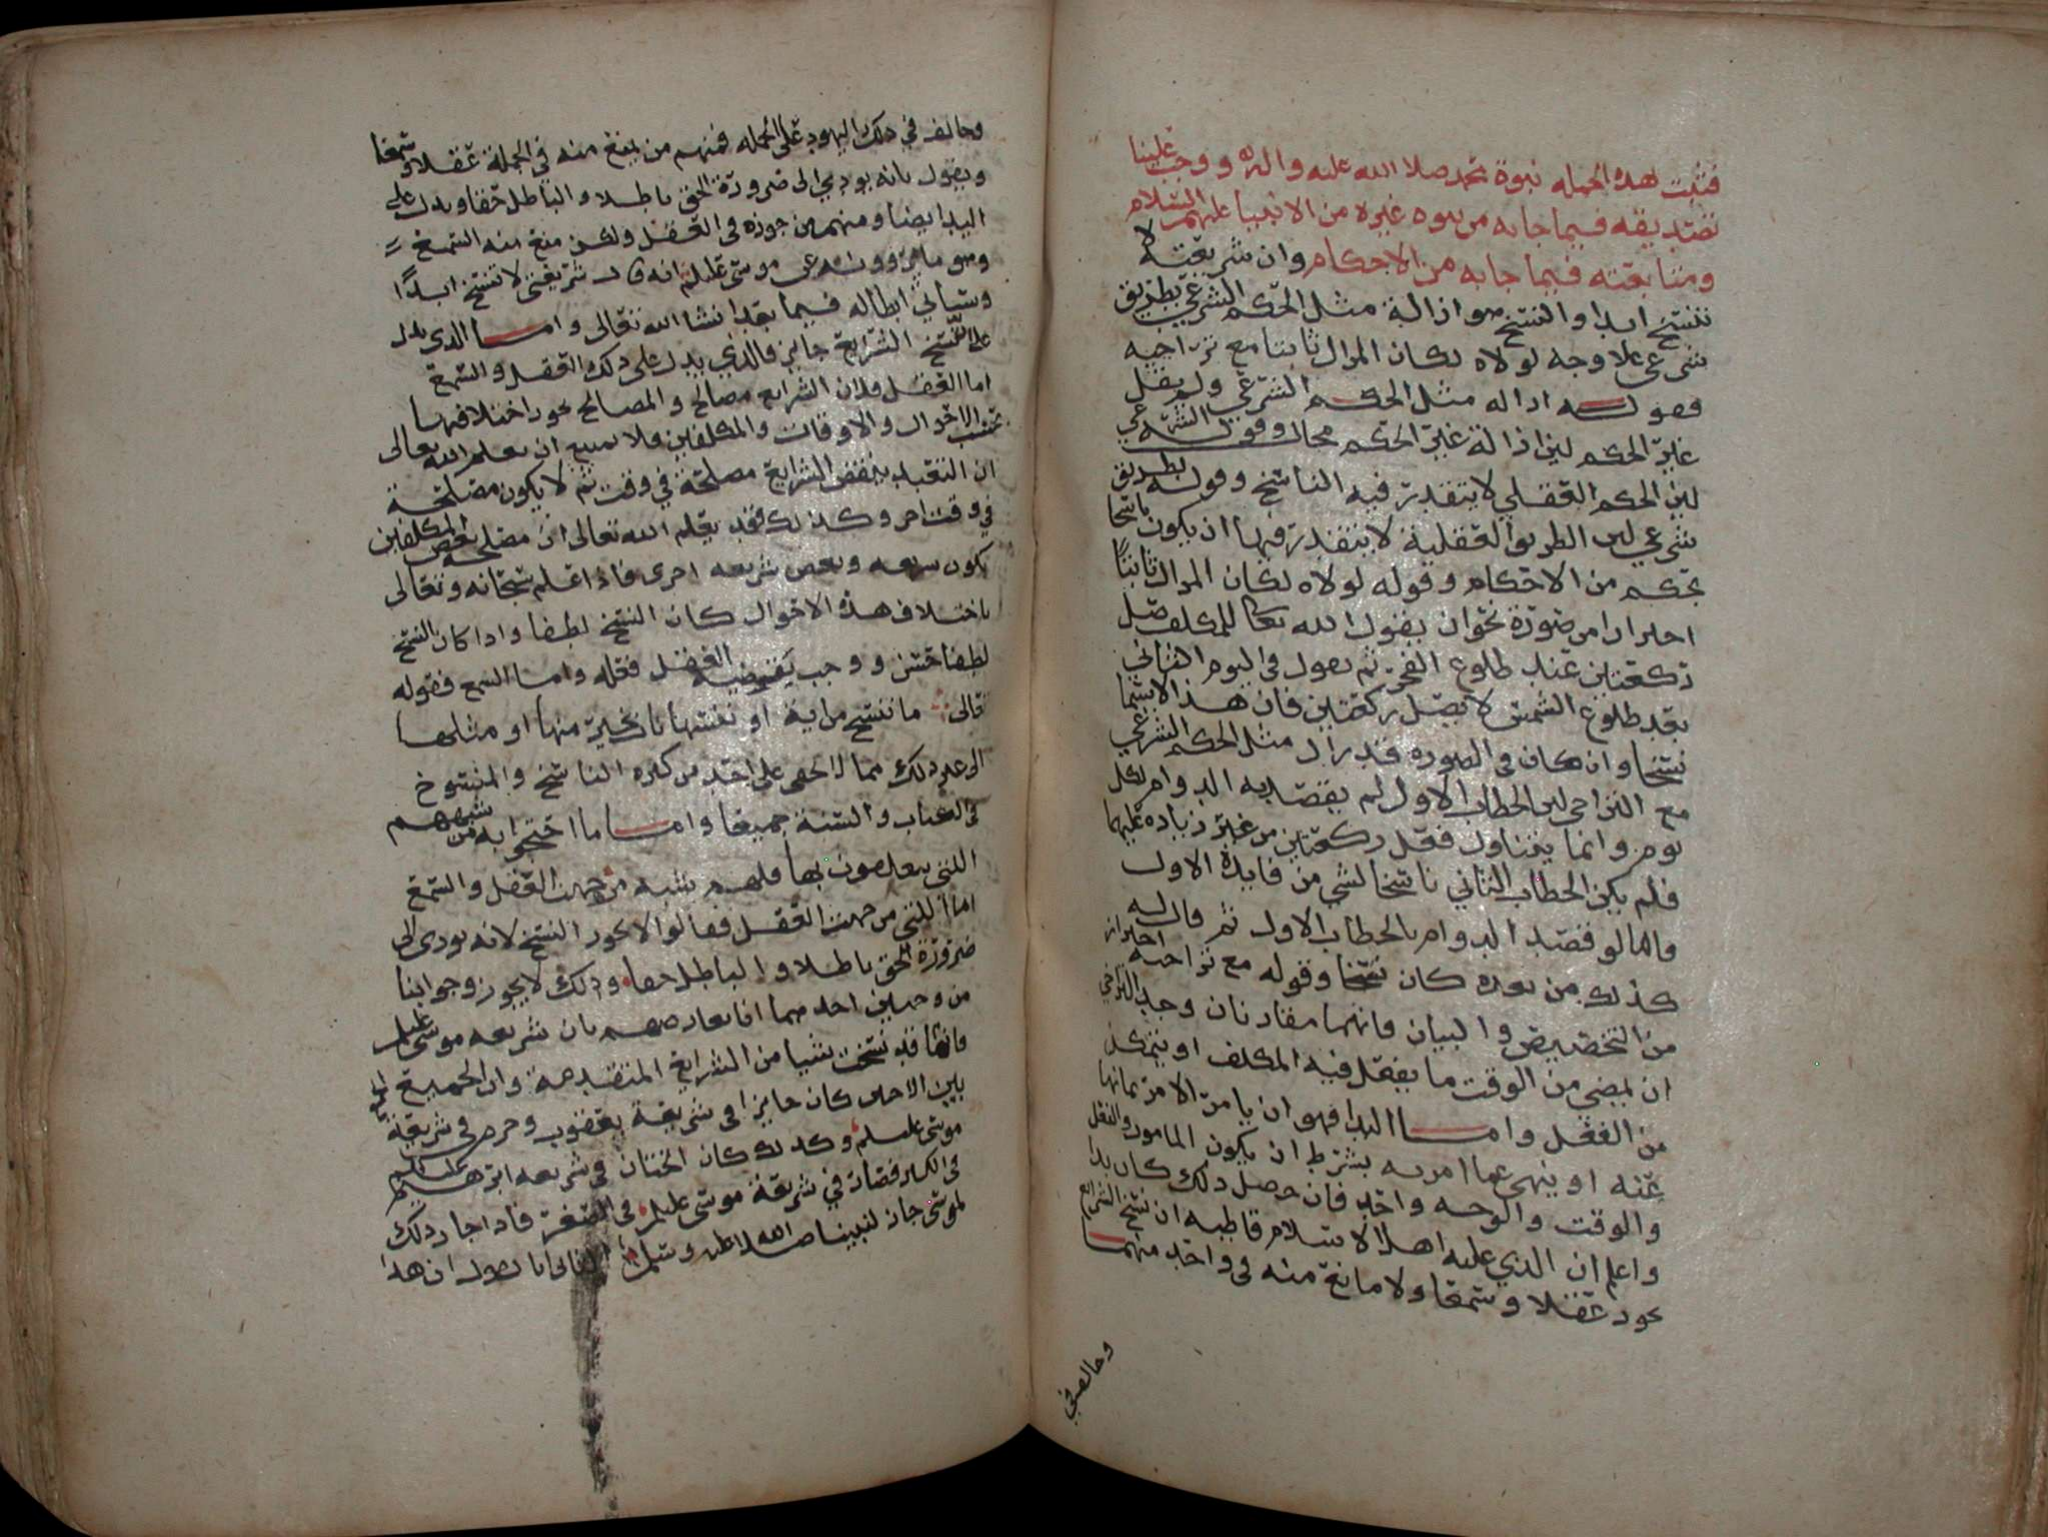 فثبت لهذه الجمله نبوة محمد صلا الله عليه واله ووجب علينا
تصديقه فيما جا به من نبوه غيره من الانبيا عليهم السلام
ومتابعته فيما جا به من الاحكام وان شريعته لا
تنسخ ابدا والنسخ هو ازالة مثل الحكم الشرعي بطريق
شرعي علا وجه لولاه لكان المزال ثابتا مع تراخيه
فقولنا ازاله مثل الحكم الشرعي ولم يقل
عين الحكم لين ازالة عين الحكم محال وقوله الشرعي
لين الحكم العقلي لا يتقدر فيه الناسخ وقوله بطريق
شرعي لين الطريق العقلية لا يتقدر فيها ان يكون ناسخا
لحكم من الاحكام وقوله لولاه لكان المزال ثابتا
احترازا من صورة نحو ان يقول الله تعالى للمكلف صل
ركعتين عند طلوع الفجر ثم يقول في اليوم الثاني
بعد طلوع الشمس لا تصل ركعتين فان هذا لا يسما
نسخا وان كان في الصوره قد زال مثل الحكم الشرعي
مع التراخي لين الخطاب الاول لم يقصد به الدوام لكل
يوم وانما يتناول فعل ركعتين من غير زياده عليهما
فلم يكن الخطاب الثاني ناسخا لشي من فايدة الاول
واما لو قصد الدوام بالخطاب الاول ثم قال له
كذلك من بعده كان نسخا وقوله مع تراخيه احتراز
من التخصيص والبيان فانهما مقارنان وحد التراخي
ان يمضي من الوقت ما يفعل فيه المكلف او يتمكن
من الفعل واما البدا فهو ان يامر الامر بما نها
عنه او ينهى عما امر به بشرط ان يكون المامور والفعل
والوقت والوجه واحد فان حصل ذلك كان بدا
واعلم ان الذي عليه اهل الاسلام قاطبه ان نسخ الشرايع
يجوز عقلا وسمعا ولا مانع منه في واحد منهما
وخالف في
وخالف في ذلك اليهود على الجمله فمنهم من يمنع منه في الجملة عقلا وسمعا
ويقول بانه يودي الى ضرورة الحق باطلا والباطل حقا ويدل على
البدا ايضا ومنهم من جوزه في العقل ولكن منع منه السمع
وهو ما يروونه عن موسى عليلم انه قال شريعتي لا تنسخ ابدًا
وسياتي ابطاله فيما بعد انشا الله تعالى واما الذي يدل
على ان نسخ الشرايع جايز فالذي يدل على ذلك العقل والسمع
اما العقل فلان الشرايع مصالح والمصالح يجوز اختلافها
بحسب الاحوال والاوقات والمكلفين فلا يمتنع ان يعلم الله تعالى
ان التعبد ببعض الشرايع مصلحة في وقت ثم لا يكون مصلحة
في وقت اخر وكذلك فقد يعلم الله تعالى ان مصلحه بعض المكلفين
يكون بشريعه وبعض بشريعه اخرى فاذا علم سبحانه وتعالى
باختلاف هذه الاحوال كان النسخ لطفا واذا كان النسخ
لطفا حسن ووجب بقضية العقل فعله واما السمع فقوله
تعالى ما ننسخ من اية او ننسها نات بخير منها او مثلها
الى غير ذلك مما لا يخفى على احد من كثره الناسخ والمنسوخ
في الكتاب والسنة جميعا واما ما احتجوا به من شبههم
اللتي يتعلقون بها فلهم شبه من جهت العقل والسمع
اما اللتي من جهت العقل فقالوا لا يجوز النسخ لانه يودي الى
ضرورة الحق باطلا والباطل حقا وذلك لا يجوز وجوابنا
من وجهين احدهما انا نعارضهم بان شريعه موسى عليلم
فانها قد نسخت شيا من الشرايع المتقدمة وان الجمع
بين الاختين كان جايزا في شريعة يعقوب وحرم في شريعة
موسى عليلم وكذلك كان الختان في شريعه ابرهيم عليلم
في الكبر فصار في شريعة موسى عليلم في الصغر فاذا جاز ذلك
لموسى جاز لنبينا صلا الله عليه وسلم الثاني انا نقول ان هذا